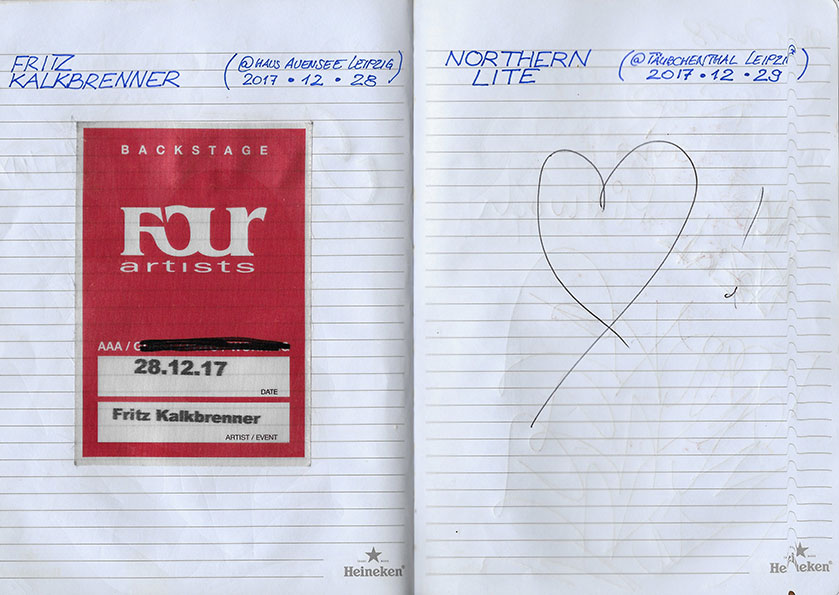 FRITZ
KALKBRENNER
(@HAUS AUENSEE LEIPZIG)
2017 • 12 • 28
BACKSTAGE
FOUR
artists
AAA /
28.12.17
DATE
Fritz Kalkbrenner
ARTIST / EVENT
Heineken®
NORTHERN
LITE
(@TÄUBCHENTHAL LEIPZIG)
2017 • 12 • 29
Heineken®